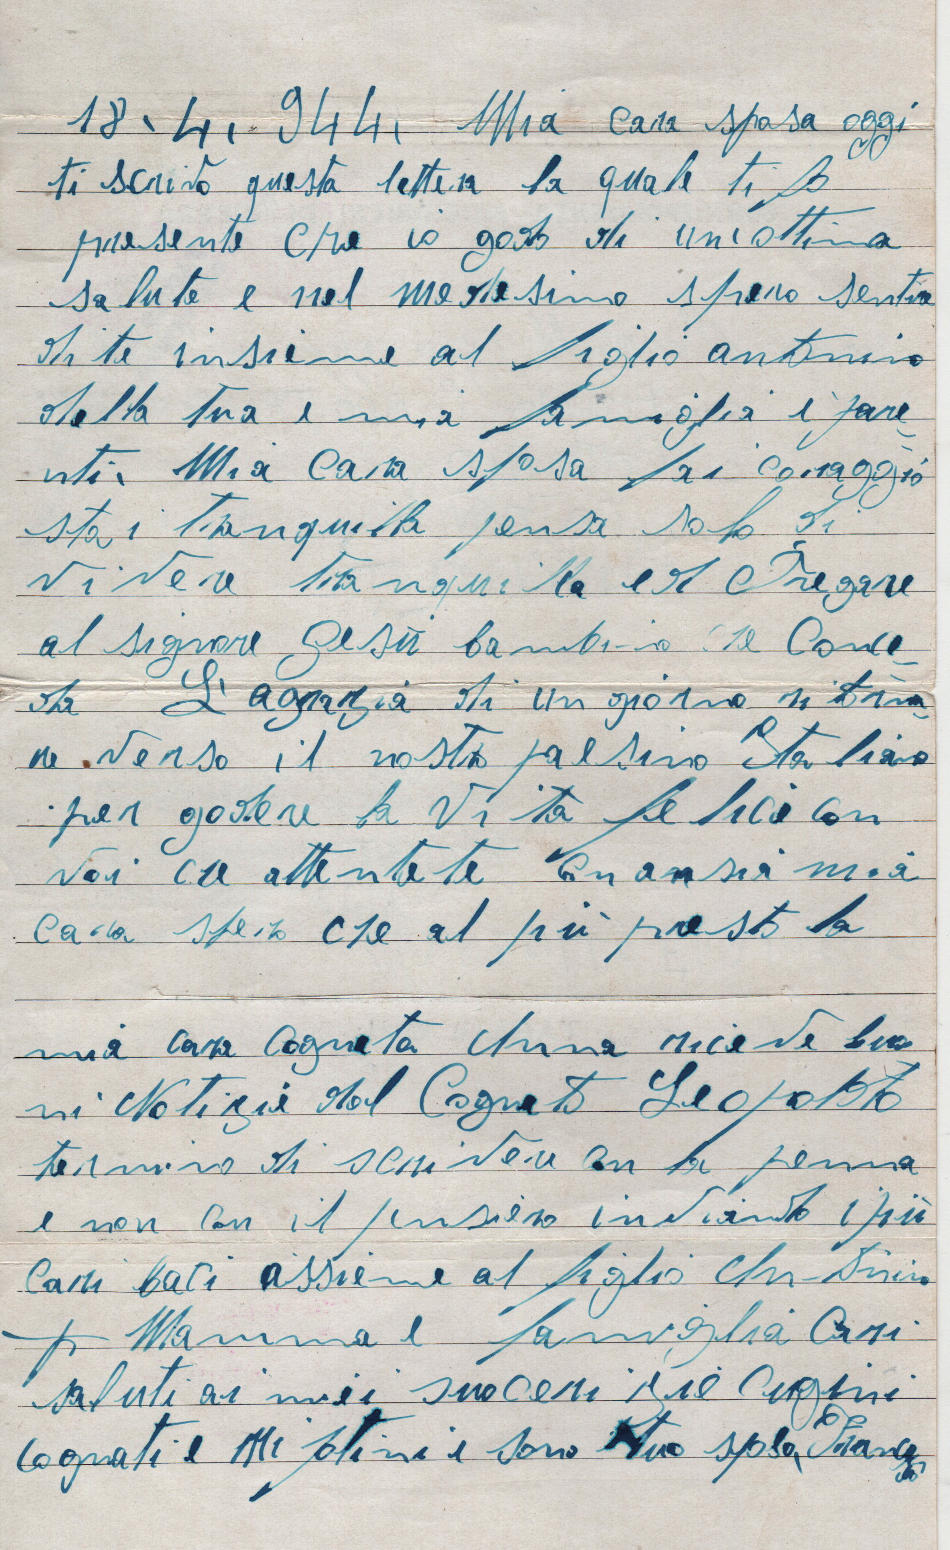 18.4.944. Mia cara sposa oggi
ti scrivo questa lettera la quale ti fo
presente che io godo di un'ottima
salute e nel medesimo spero sentire
di te insieme al figlio antonino
della tua e mia famiglia e pare-
nti. Mia Cara sposa fai coraggio
stai tranquilla pensa solo di
vivere tranquilla ed Pregare
al signore Gesù bambino che Conce-
da L'agrazia di un giorno ritorna-
re verso il nostro paesino Italiano
per godere la Vita felice con
voi che attentete con ansia mia
cara spero che al più presto la
mia cara Cogneta Anna riceve buo
ni Notizie dal Cogneto Leopoldo
termino di scrivere con la penna
e non con il pensiero inviando i più
Cari baci assieme al figlio Antonino
Mamma e famiglia Cari
saluti ai miei suoceri zie Cugini
cognati e sono tuo sposo France
sco